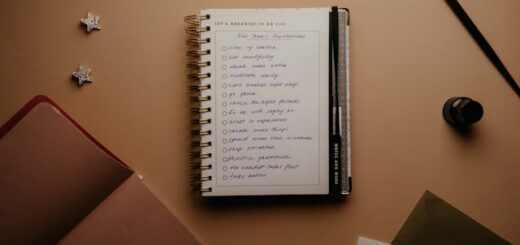 LET'S ORGANISE-TO DO LIST
New Year's Resolutions
wake up earlier
eat mindfully
drink more water
meditate daily
have mental rest days
go green
choose the right friends
be ok with saying no
invest in experiences
create more things
spend more time in nature
stop
practice gratitude
do hardest tasks first
take action
NOTES AND MORE